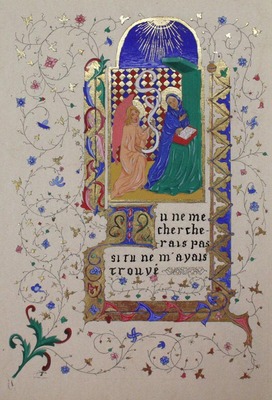 Tu ne me
cherche-
rais pas
si tu ne m'avais
trouvé